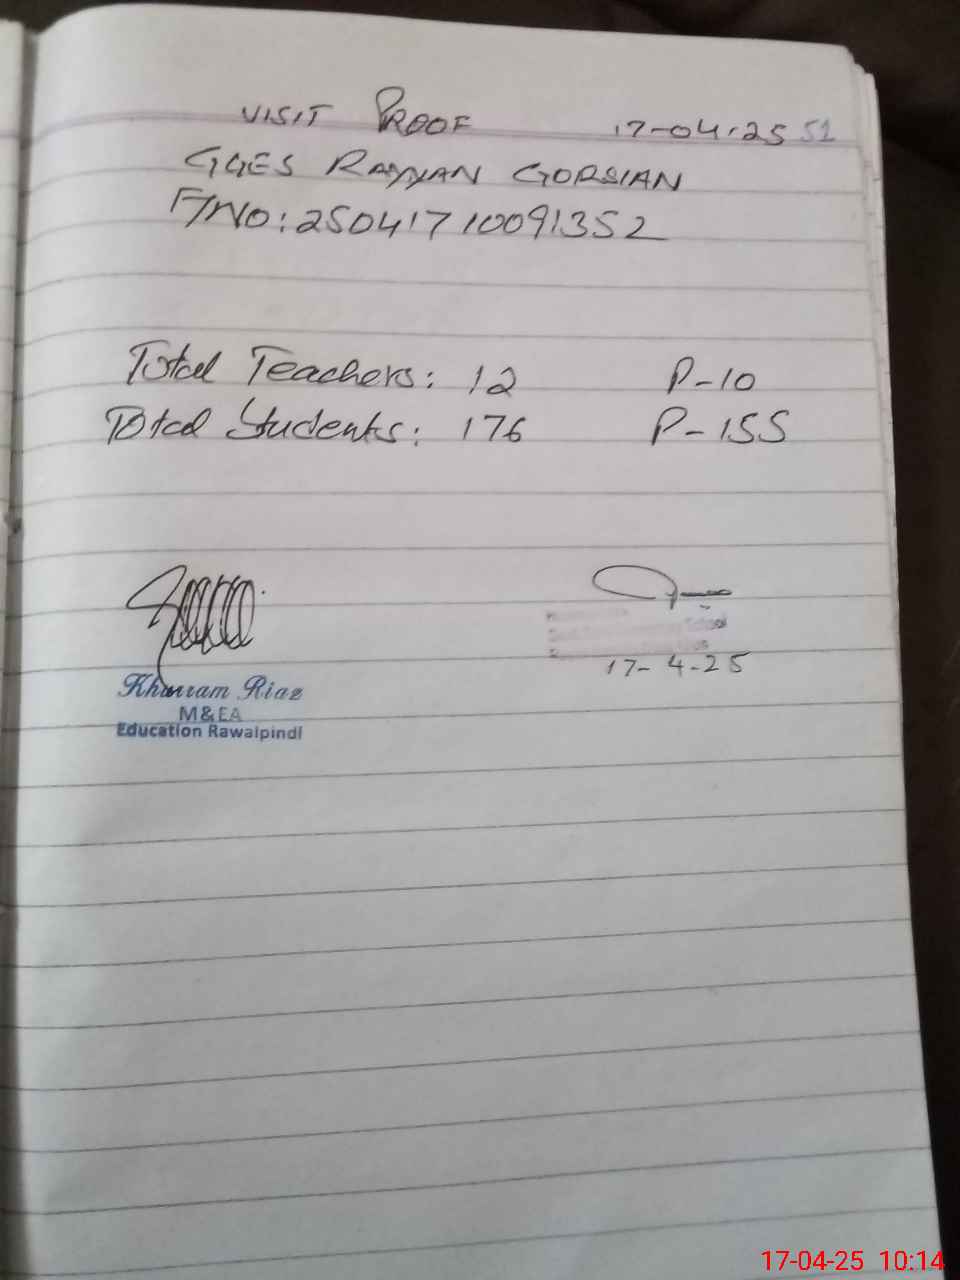 VISIT PROOF 17-04-25 51
GGES RAYYAN GORSIAN
F/NO: 25041710091352
Total Teachers: 12 P-10
Total Students: 176 P-155
Khurram Riaz
M&EA
Education Rawalpindi
School
17-4-25
17-04-25 10:14